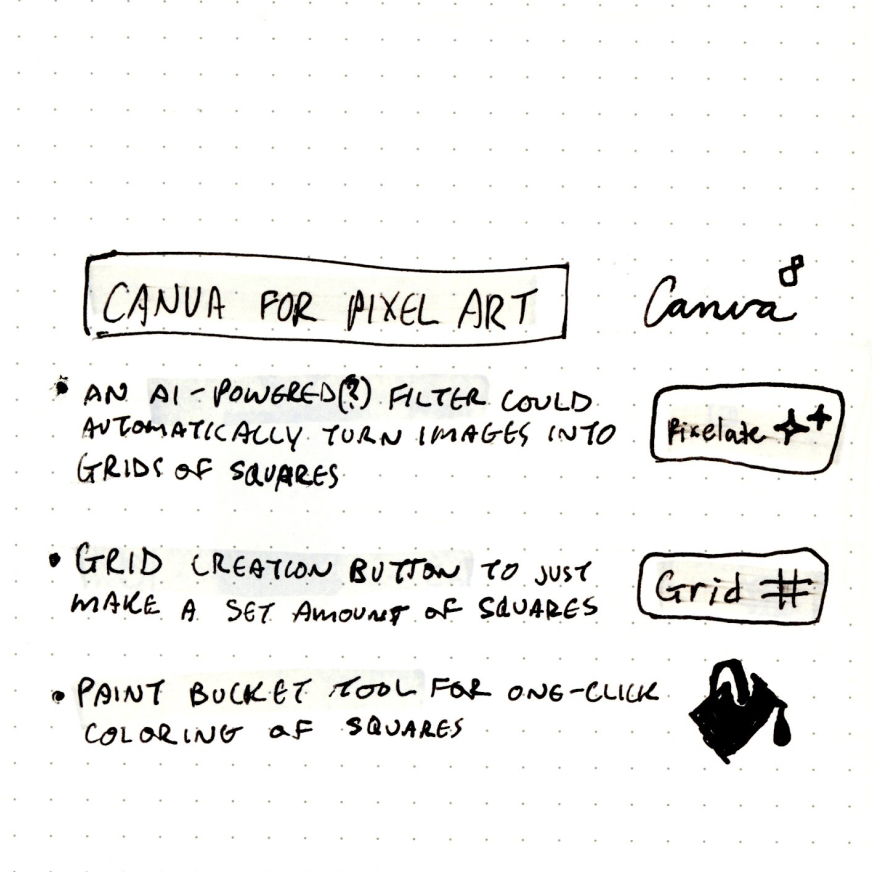 CANVA FOR PIXEL ART
Canva
AN AI-POWERED(?) FILTER COULD
AUTOMATICALLY TURN IMAGES INTO
GRIDS OF SQUARES
Pixelate
GRID CREATION BUTTON TO JUST
MAKE A SET AMOUNT OF SQUARES
Grid #
PAINT BUCKET TOOL FOR ONE-CLICK
COLORING OF SQUARES